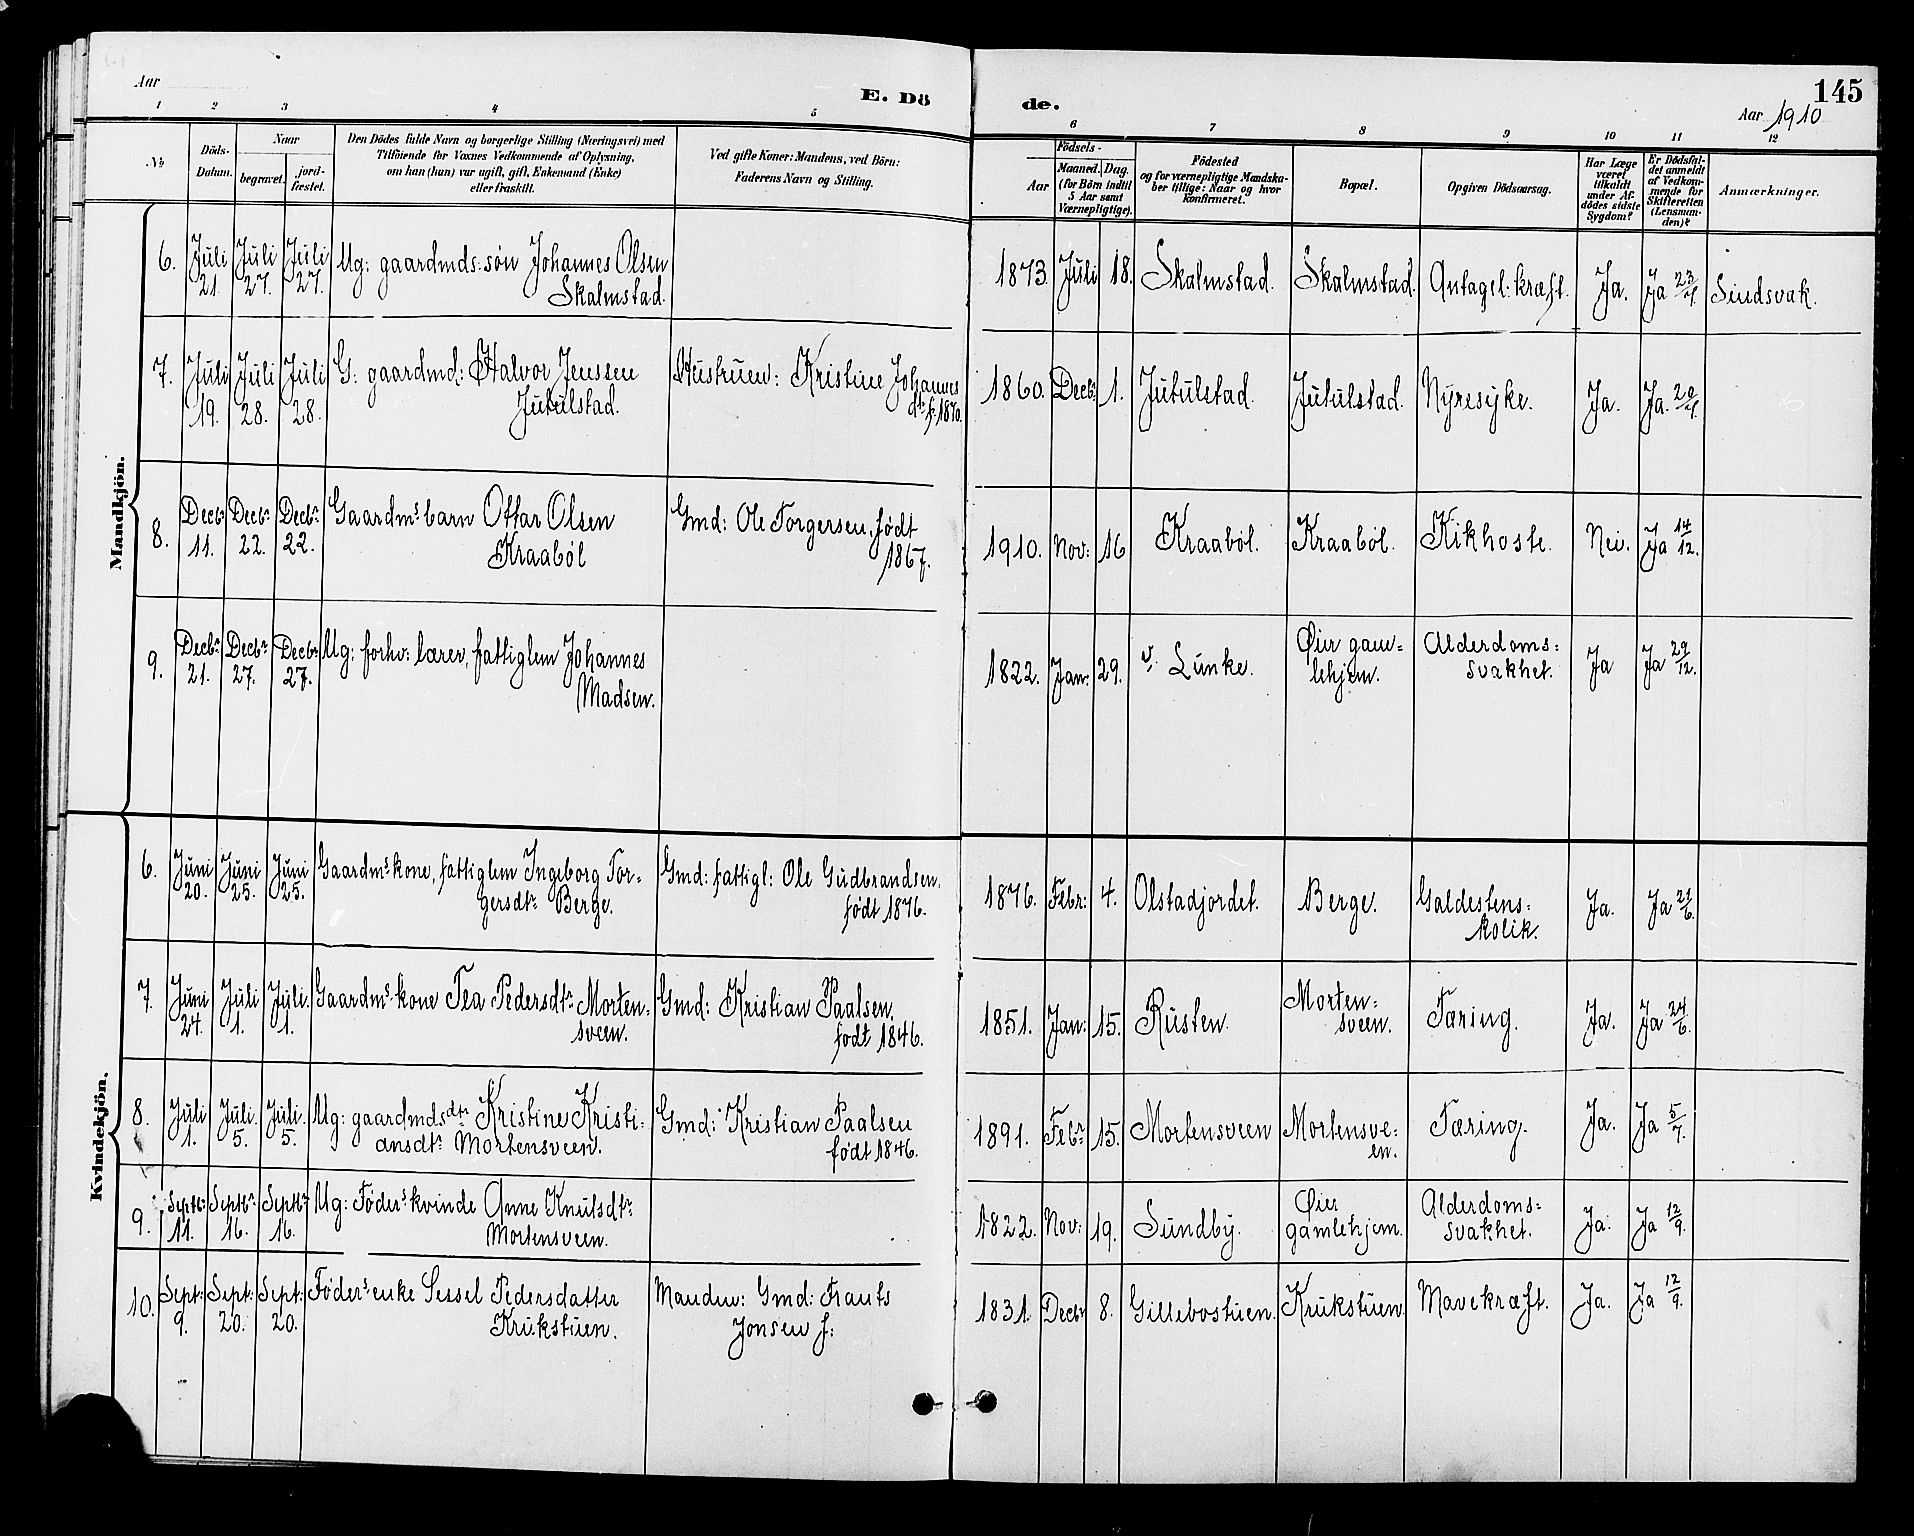 Aar
E. Dö
de.
145
Aar 1910
1 2 3 4 5 6 7 8 9 10 11 12
No
Döds-
Datum.
Naar
begravet.
jord-
fæstet.
Den Dödes fulde Navn og borgerlige Stilling (Næringsvei) med
Tilföiende for Voxnes Vedkommende af Oplysning,
om han (hun) var ugift, gift, Enkemand (Enke)
eller fraskilt.
Ved gifte Koner: Mandens, ved Börn:
Faderens Navn og Stilling.
Födsels-
Aar
Maaned. Dag.
(for Börn indtil
5 Aar samt
Værnepligtige).
Födested
og for værnepligtige Mandska-
ber tillige: Naar og hvor
konfirmeret.
Bopæl.
Opgiven Dödsaarsag.
Har Læge
været
tilkaldt
under Af-
dödes sidste
Sygdom?
Er Dödsfal-
det anmeldt
af Vedkom-
mende for
Skifteretten
(Lensman-
den)?
Anmærkninger.
Mandkjön.
6. Juli 21. Juli 27. Juli 27. Ug: gaardmds: søn Johannes Olsen
Skalmstad.
1873. Juli 18. Skalmstad. Skalmstad. Antagel: kræft. Ja. Ja 23/4. Sindsvak.
7. Juli 19. Juli 28. Juli 28. G: gaardmd: Halvor Jenssen
Jutulstad.
Hustruen: Kristine Johannes
dtr f. 1870.
1860. Decbr. 1. Jutulstad. Jutulstad. Nyresyke. Ja. Ja. 20/4.
8. Decbr 11. Decbr 22. Decbr 22. Gaardms barn Ottar Olsen
Kraabøl
Gmd: Ole Torgersen, født
1867.
1910. Nov: 16 Kraabøl. Kraabøl. Kikhoste. Nei. Ja 14/12.
9. Decbr 21. Decbr 27. Decbr 27. Ug: forhv: lærer, fattiglem Johannes
Madsen.
1822. Jan: 29. v. Lunke. Øier gam-
lehjem. Alderdoms=
svakhet. Ja Ja 29/12.
Kvindekjön.
6. Juni 20. Juni 25. Juni 25. Gaardms kone, fattiglem Ingeborg Tor=
gersdtr Berge.
Gmd: fattigl: Ole Gudbrandsen,
født 1876.
1876. Febr: 4. Olstadjordet. Berge. Galdestens=
kolik. Ja. Ja 21/6.
7. Juni 24. Juli 1. Juli 1. Gaardms kone Tea Pedersdtr Morten=
sveen.
Gmd: Kristian Paalsen,
født 1846.
1851. Jan: 15. Rusten. Morten=
sveen. Tæring. Ja. Ja 24/6.
8. Juli 1. Juli 5. Juli 5. Ug: gaardmdsdtr Kristine Kristi=
ansdtr Mortensveen.
Gmd: Kristian Paalsen
født 1846.
1891. Febr 15. Mortensveen Mortensve=
en. Tæring. Ja. Ja 5/7.
9. Septbr: 11. Septbr 16. Septbr 16. Ug: Føderskvinde Anne Knutsdtr
Mortensveen.
1822. Nov: 19. Sundby. Øier
gamlehjem. Alderdoms=
svakhet. Ja. Ja 12/9.
10. Sept: 9. Sept: 20. Sept: 20. Føders enke Sessel Pedersdatter
Krukstuen.
Manden: Gmd: Frants
Jonsen f:
1831. Decbr 8. Gillebostuen. Krukstuen. Mavekræft. Ja. Ja 12/9.